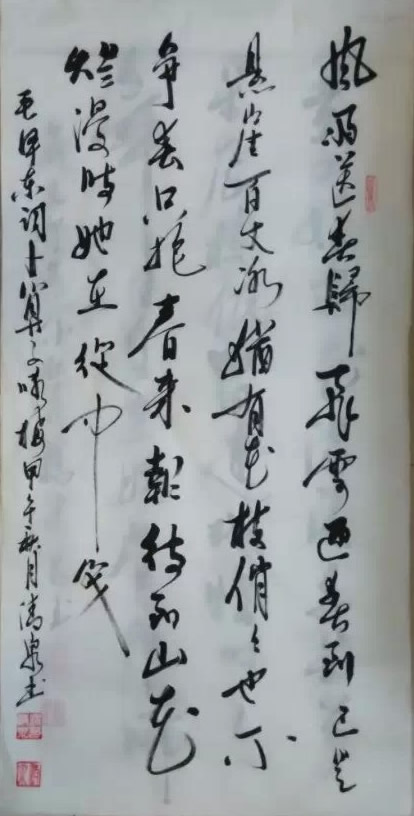 風雨送春歸飛雪迎春到已是
悬崖百丈冰猶有花枝俏々也不
争春只把春来報待到山花
烂漫時她在從中笑
毛泽东词卜算子咏梅甲午秋月清泉书